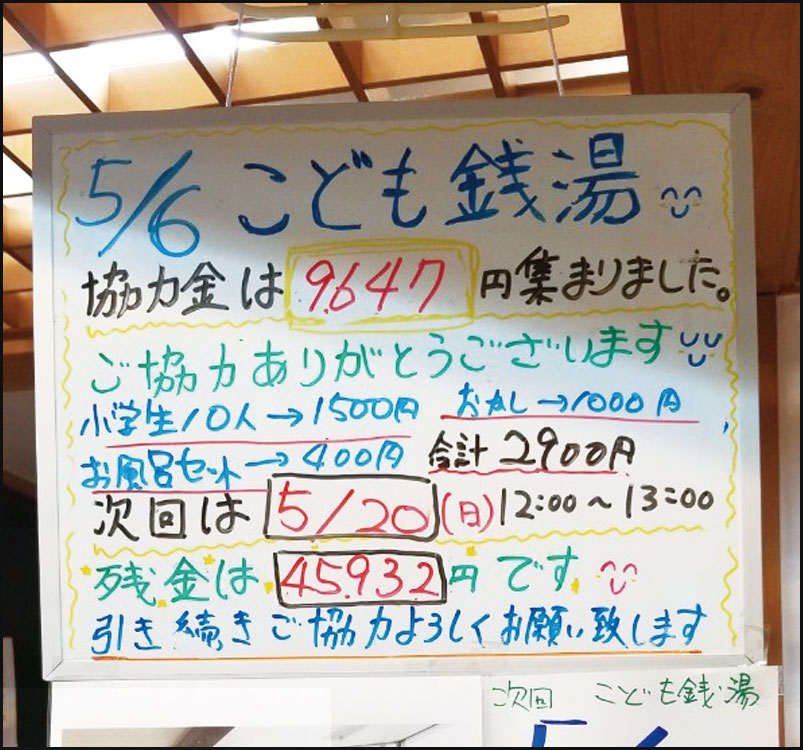 5/6 こども銭湯
協力金は 9.647 円集まりました。
ご協力ありがとうございます
小学生10人→1500円 おかし→1000円
お風呂セット→400円 合計 2900円
次回は 5/20 (日) 12:00～13:00
残金は 45.932 円です
引き続きご協力よろしくお願い致します
次回 こども銭湯
5/